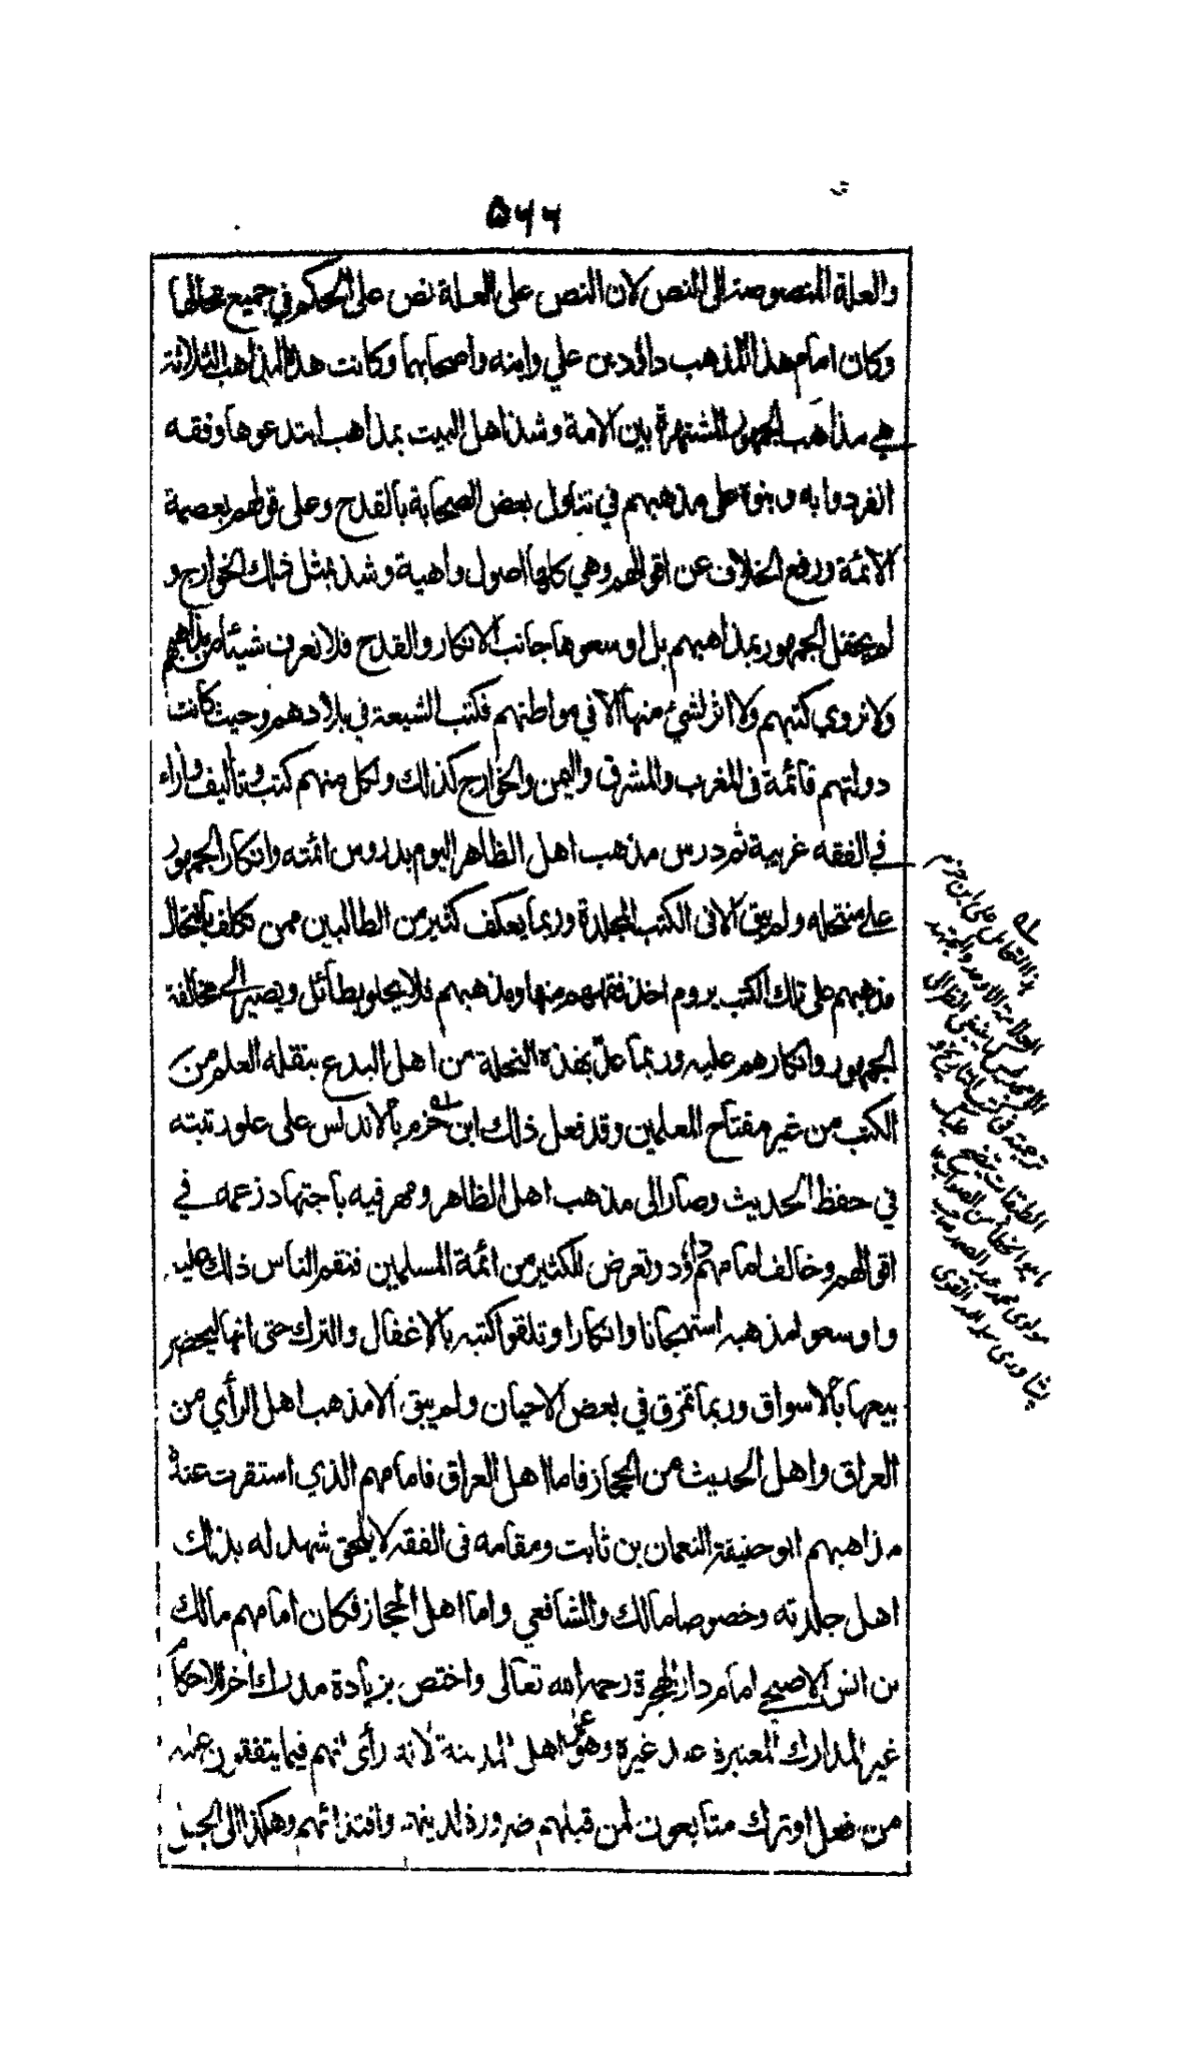 ۵۶۶
والعلة المنصوصة الى النص لان النص على العلة نص على الحكم في جميع محالها
وكان امام هذا المذهب داؤد بن علي وابنه واصحابهما وكانت هذه المذاهب الثلاثة
هي مذاهب الجمهور المشتهرة بين الامة وشذ اهل البيت بمذاهب ابتدعوها وفقه
انفردوا به وبنوه على مذهبهم في تناول بعض الصحابة بالقدح وعلى قولهم بعصمة
الائمة ورفع الخلاف عن اقوالهم وهي كلها اصول واهية وشذ بمثل ذلك الخوارج و
لم يحتفل الجمهور بمذاهبهم بل اوسعوها جانب الانكار والقدح فلا نعرف شيئا من مذاهبهم
ولا نروي كتبهم ولا اثر لشئ منها الا في مواطنهم فكتب الشيعة في بلادهم وحيث كانت
دولتهم قائمة في المغرب والمشرق واليمن والخوارج كذلك ولكل منهم كتب وتأليف وآراء
في الفقه غريبة ثم درس مذهب اهل الظاهر اليوم بدروس ائمته وانكار الجمهور
على منتحله ولم يبق الا في الكتب المجلدة وربما يعكف كثير من الطالبين ممن تكلف بانتحال
مذهبهم على تلك الكتب يروم اخذ فقههم منها ومذهبهم فلا يحلو بطائل ويصير الى مخالفة
الجمهور وانكارهم عليه وربما عد بهذه النحلة من اهل البدع بنقله العلم من
الكتب من غير مفتاح المعلمين وقد فعل ذلك ابن حزم بالاندلس على علو رتبته
في حفظ الحديث وصار الى مذهب اهل الظاهر ومهر فيه باجتهاد زعمه في
اقوالهم وخالف امامهم داؤد وتعرض للكثير من ائمة المسلمين فنقم الناس ذلك عليه
واوسعوا مذهبه استهجانا وانكارا وتلقوا كتبه بالاغفال والترك حتى انها ليحضر
بيعها بالاسواق وربما تمزق في بعض الاحيان ولم يبق الا مذهب اهل الرأي من
العراق واهل الحديث من الحجاز فاما اهل العراق فامامهم الذي استقرت عنده
مذاهبهم ابو حنيفة النعمان بن ثابت ومقامه في الفقه لا يلحق شهد له بذلك
اهل جلدته وخصوصا مالك والشافعي واما اهل الحجاز فكان امامهم مالك
بن انس الاصبحي امام دار الهجرة رحمه الله تعالى واختص بزيادة مدرك آخر للاحكام
غير المدارك المعتبرة عند غيره وهو عمل اهل المدينة لانه رأى انهم فيما يتفقون عليه
من فعل او ترك متابعون لمن قبلهم ضرورة لدينهم واقتدائهم وهكذا الى الجيل
هذا التحامل على ابن حزم
العلامة الاوحد والمجتهد
ترجمته في كتب التاريخ و
الطبقات
الخطأ من الصواب
مولوي محمد عبد الصمد صاحب